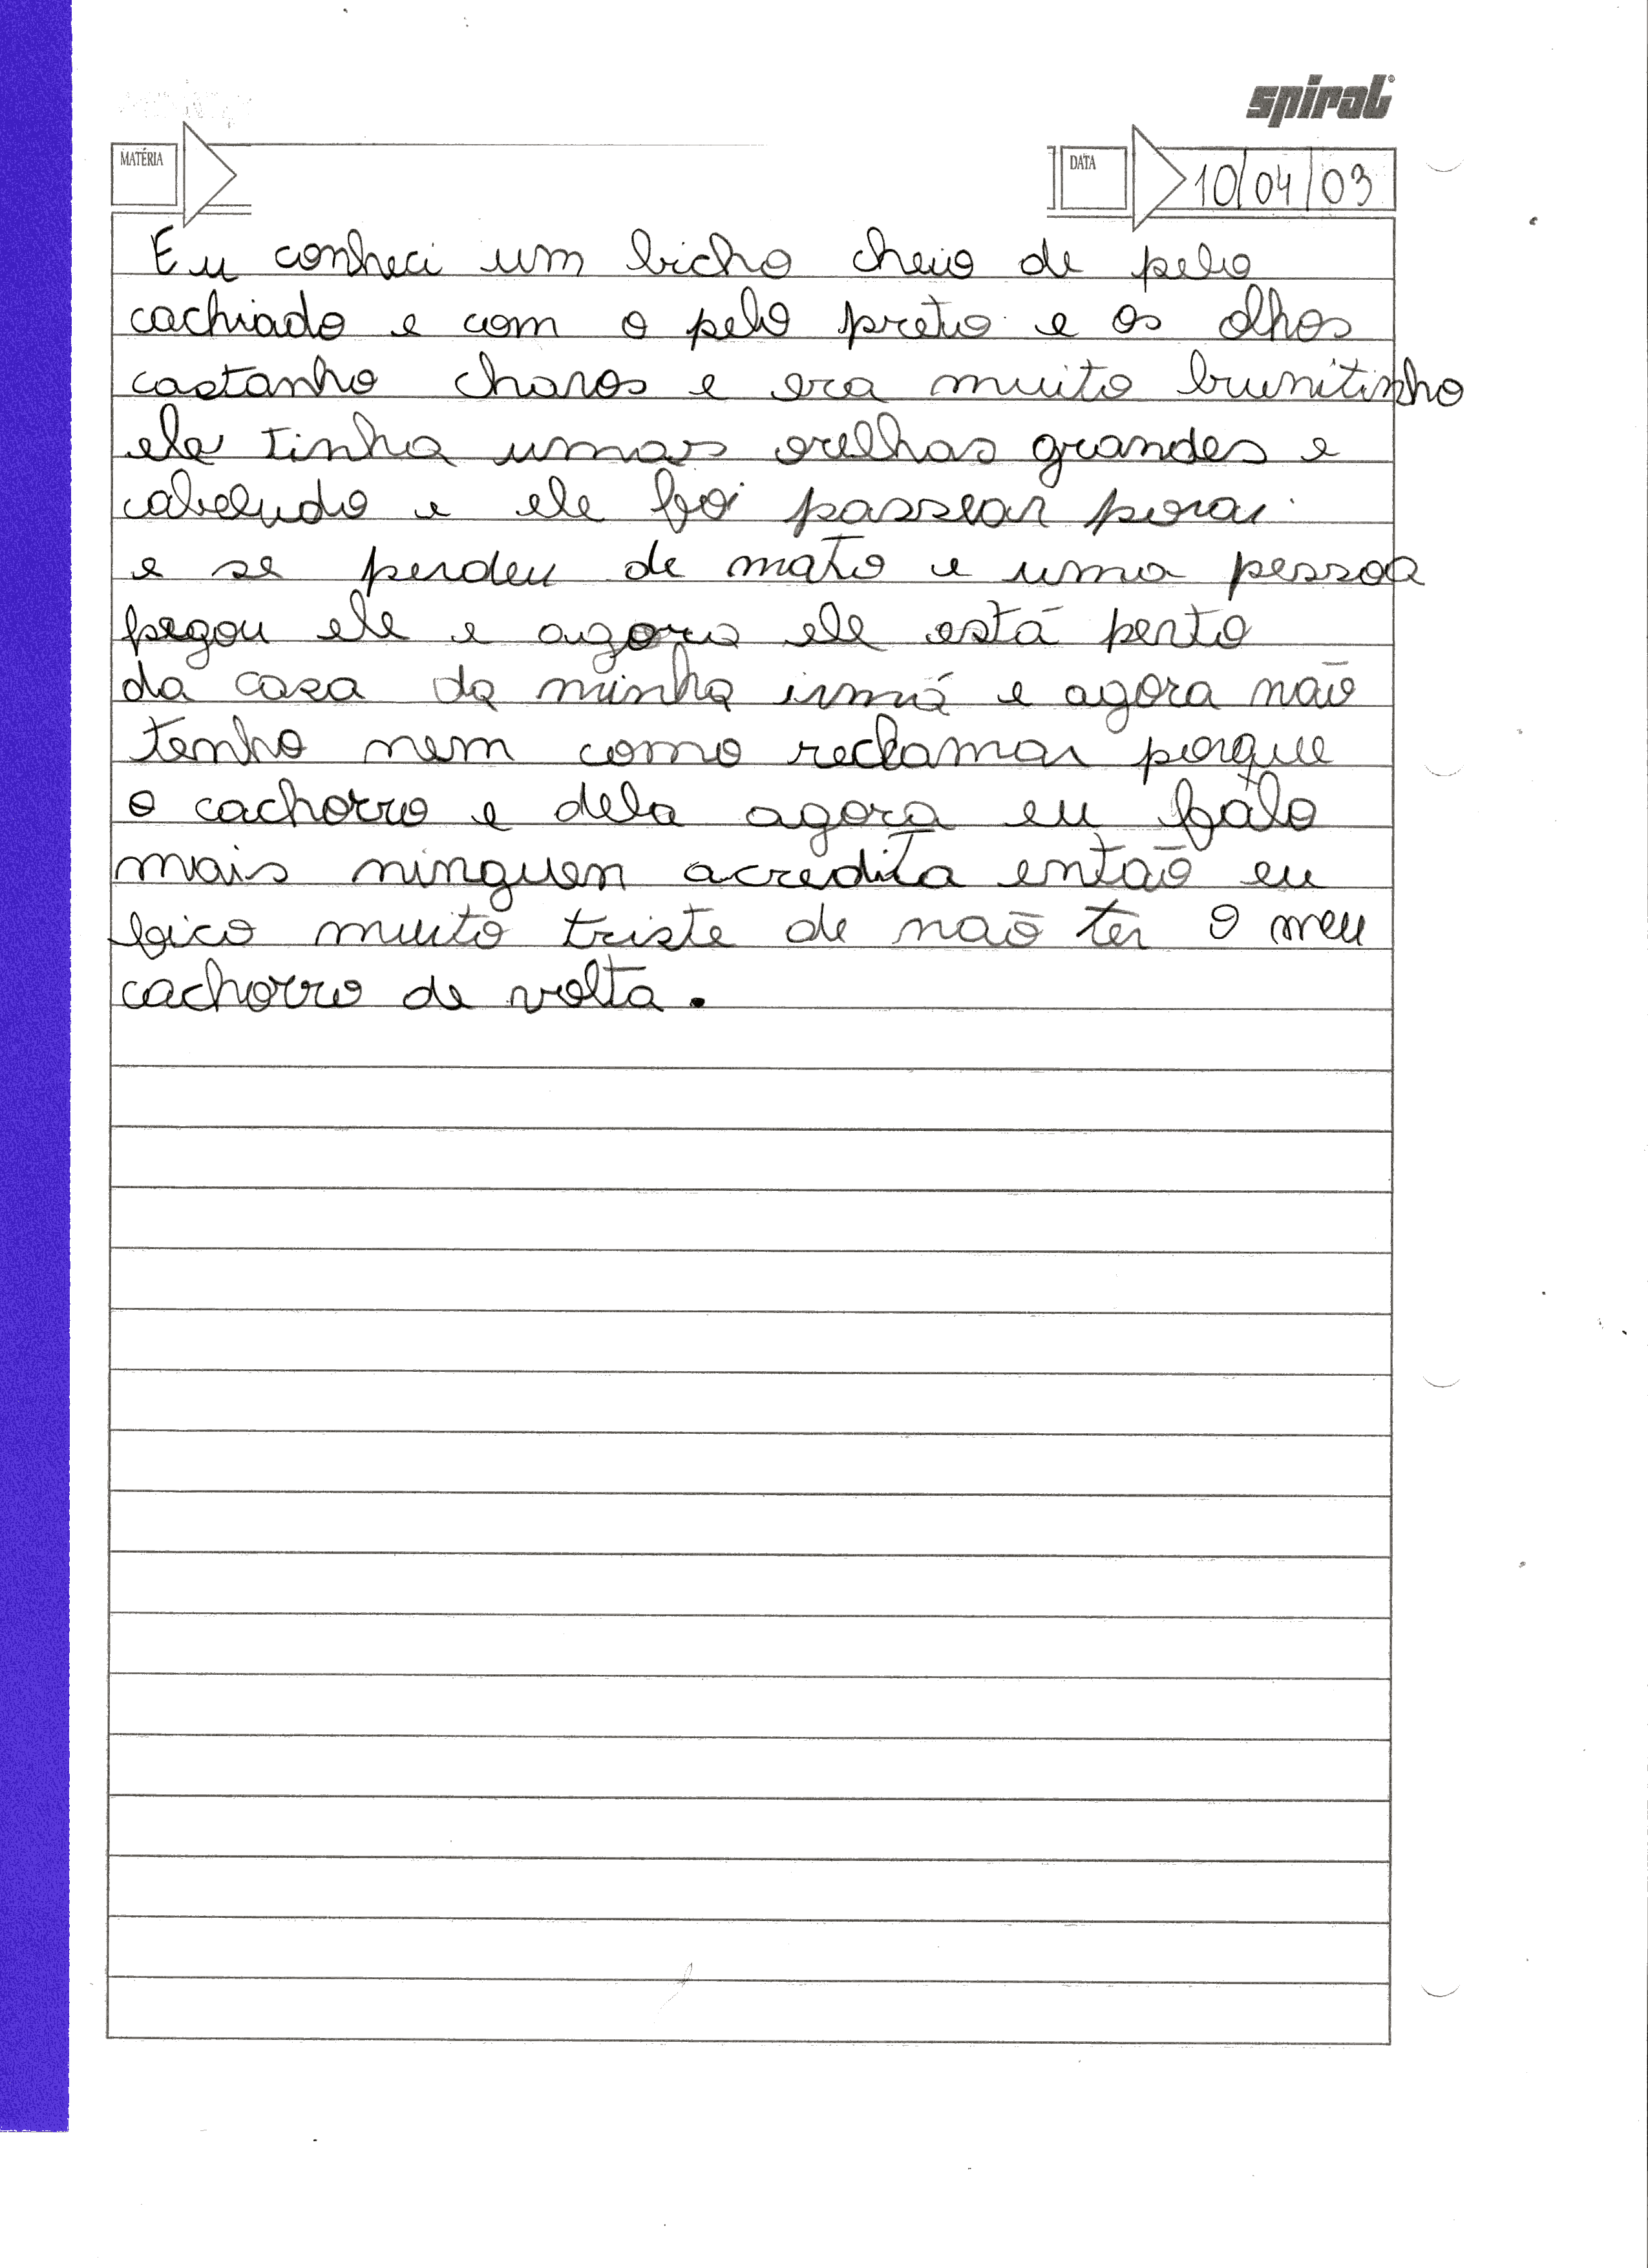 spiral
MATÉRIA
DATA 10/04/03
Eu conheci um bicho cheio de pelo
cachiado e com o pelo preto e os olhos
castanho charos e era muito brunitinho
ele tinha umas orelhas grandes e
cabeludo e ele foi passear porai
e se perdeu de mato e uma pessoa
pegou ele e agora ele está perto
da casa da minha irmá e agora não
tenho nem como reclamar porque
o cachorro e dela agora eu falo
mais ninguen acredita então eu
fico muito triste de não ter o meu
cachorro de volta.